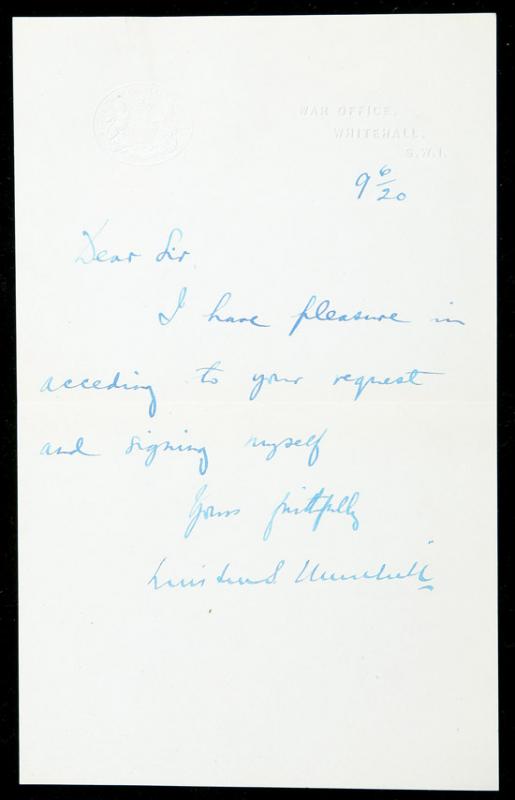 WAR OFFICE,
WHITEHALL.
S.W.1.
9 6/20
Dear Sir,
I have pleasure in
acceding to your request
and signing myself
Yours faithfully
Winston S Churchill